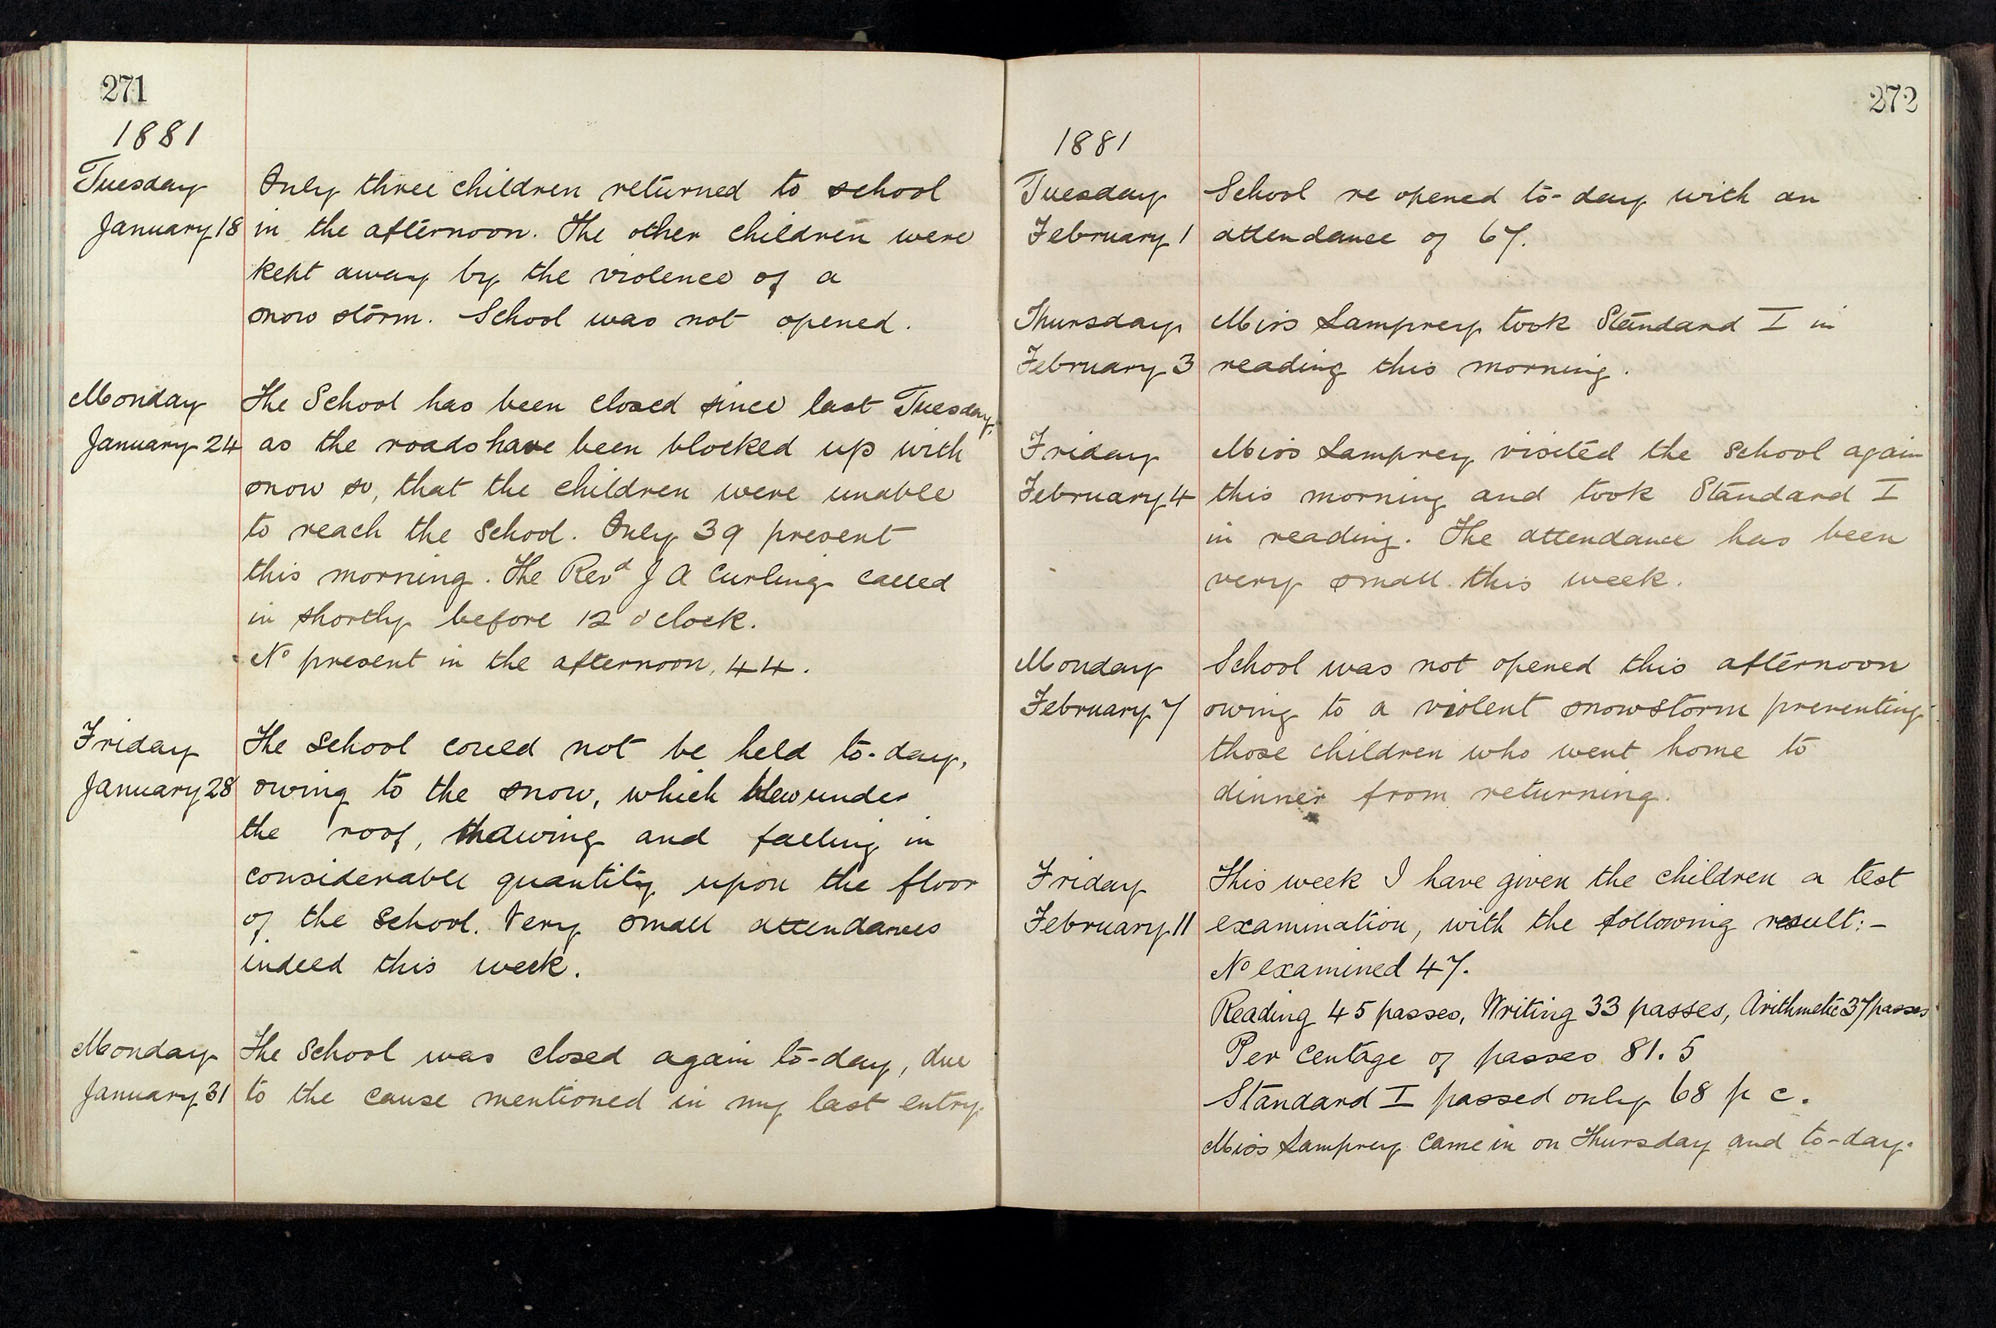 271
1881
Tuesday
January 18
Only three children returned to school
in the afternoon. The other children were
kept away by the violence of a
snow storm. School was not opened.
Monday
January 24
The School has been closed since last Tuesday,
as the roads have been blocked up with
snow so, that the children were unable
to reach the school. Only 39 present
this morning. The Revd J A Curling called
in shortly before 12 o'clock.
No present in the afternoon, 44.
Friday
January 28
The School could not be held to-day,
owing to the snow, which blew under
the roof, thawing and falling in
considerable quantity upon the floor
of the School. Very small attendances
indeed this week.
Monday
January 31
The School was closed again to-day, due
to the cause mentioned in my last entry.
272
1881
Tuesday
February 1
School re opened to-day with an
attendance of 67.
Thursday
February 3
Miss Lamprey took Standard I in
reading this morning.
Friday
February 4
Miss Lamprey visited the school again
this morning and took Standard I
in reading. The attendance has been
very small this week.
Monday
February 7
School was not opened this afternoon
owing to a violent snowstorm preventing
those children who went home to
dinner from returning.
Friday
February 11
This week I have given the children a test
examination, with the following result:-
No examined 47.
Reading 45 passes, Writing 33 passes, Arithmetic 37 passes
Per centage of passes 81.5
Standard I passed only 68 p c.
Miss Lamprey came in on Thursday and to-day.